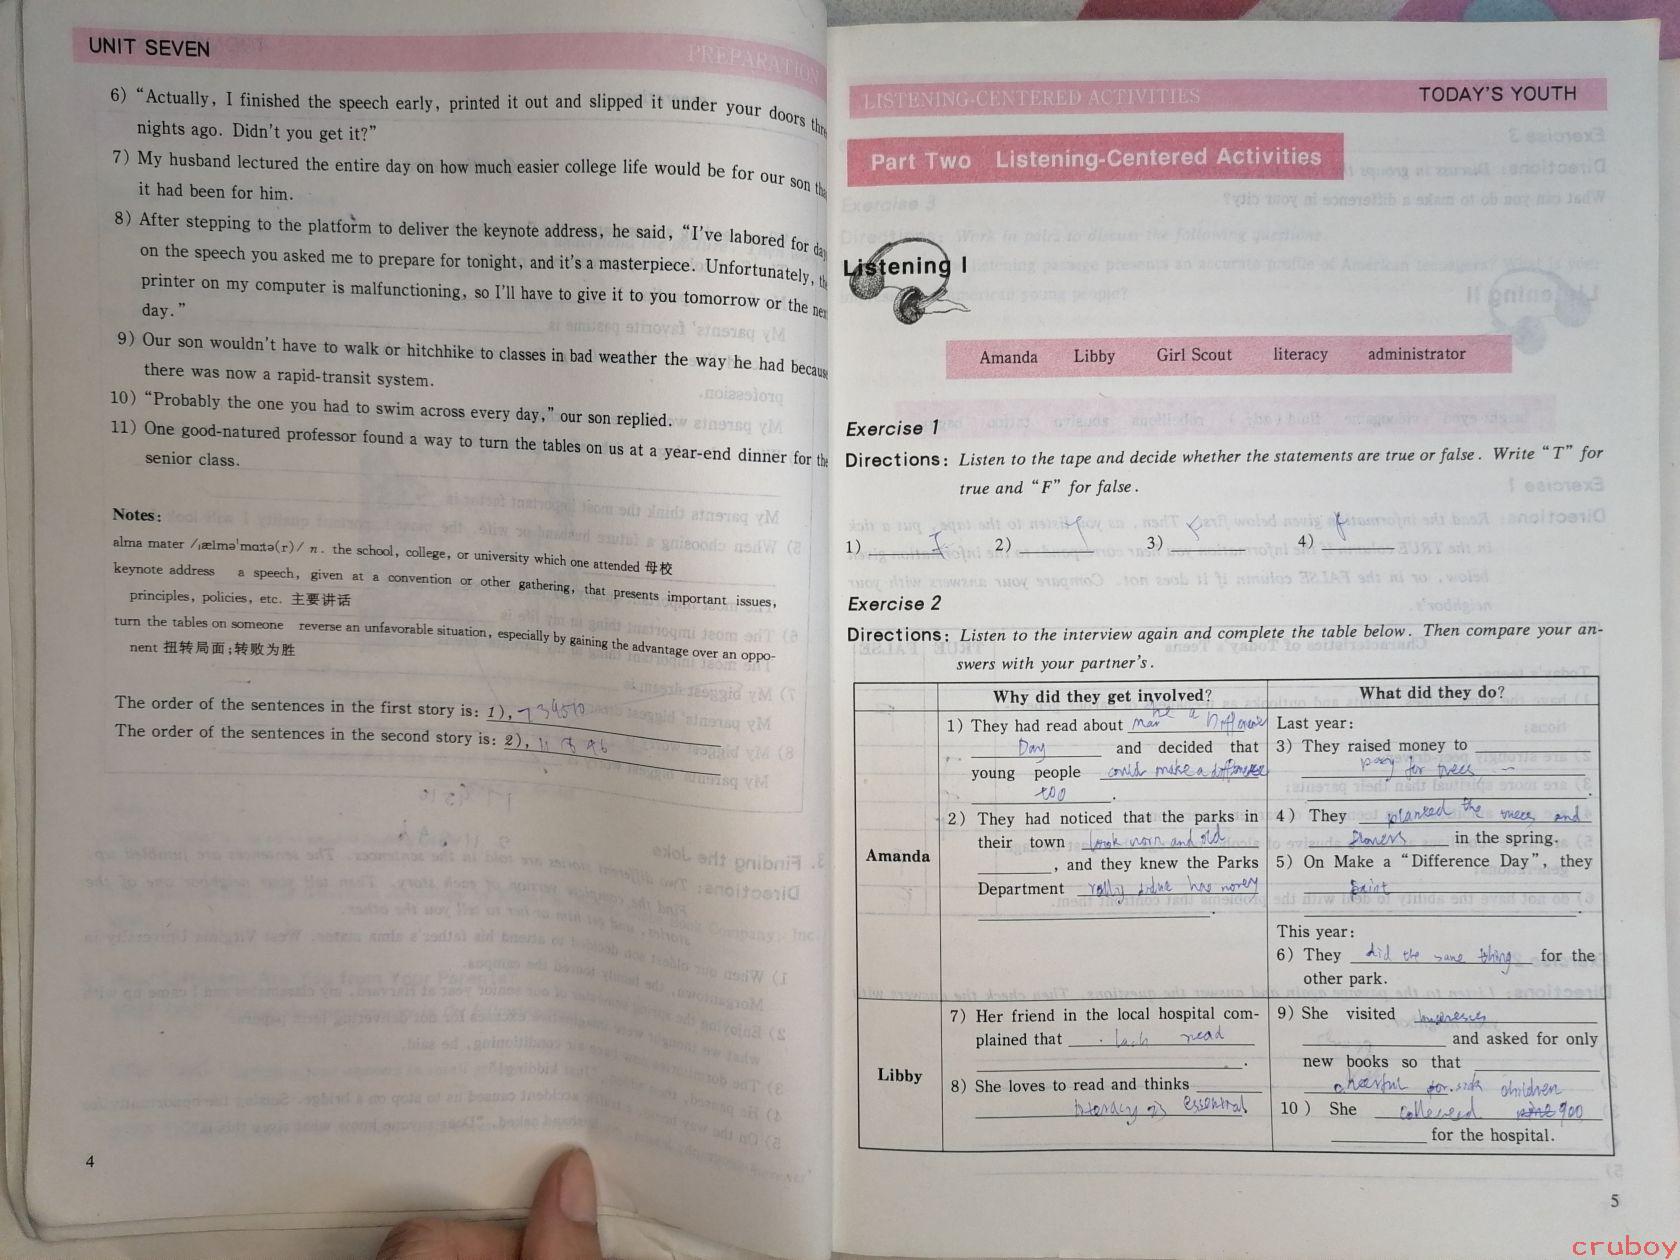 UNIT SEVEN
PREPARATION
6) “Actually, I finished the speech early, printed it out and slipped it under your doors
nights ago. Didn't you get it?”
7) My husband lectured the entire day on how much easier college life would be for our son
it had been for him.
8) After stepping to the platform to deliver the keynote address, he said, “I've labored for
on the speech you asked me to prepare for tonight, and it's a masterpiece. Unfortunately,
printer on my computer is malfunctioning, so I'll have to give it to you tomorrow or the
day.”
9) Our son wouldn't have to walk or hitchhike to classes in bad weather the way he had
there was now a rapid-transit system.
10) “Probably the one you had to swim across every day,” our son replied.
11) One good-natured professor found a way to turn the tables on us at a year-end dinner for the
senior class.
Notes:
alma mater /ˌælmə'mɑːtə(r)/ n. the school, college, or university which one attended 母校
keynote address a speech, given at a convention or other gathering, that presents important issues,
principles, policies, etc. 主要讲话
turn the tables on someone reverse an unfavorable situation, especially by gaining the advantage over an oppo-
nent 扭转局面;转败为胜
The order of the sentences in the first story is: 1), 7 3 4 5 10
The order of the sentences in the second story is: 2), 11 8 9 6
4
LISTENING-CENTERED ACTIVITIES
TODAY'S YOUTH
Part Two Listening-Centered Activities
Listening I
Amanda Libby Girl Scout literacy administrator
Exercise 1
Directions: Listen to the tape and decide whether the statements are true or false. Write “T” for
true and “F” for false.
1) 2) 3) F 4) F
Exercise 2
Directions: Listen to the interview again and complete the table below. Then compare your an-
swers with your partner's.
Why did they get involved?
What did they do?
Amanda
1) They had read about make a Difference
Day and decided that
young people could make a difference
too.
2) They had noticed that the parks in
their town look worn and old
, and they knew the Parks
Department money
.
Last year:
3) They raised money to
pay for trees
.
4) They planted the trees and
flowers in the spring.
5) On Make a “Difference Day”, they
paint
.
This year:
6) They did the same thing for the
other park.
Libby
7) Her friend in the local hospital com-
plained that lack read
.
8) She loves to read and thinks
literacy is essential
9) She visited
and asked for only
new books so that
cheerful for sick children
10) She collected 900
for the hospital.
5
cruboy